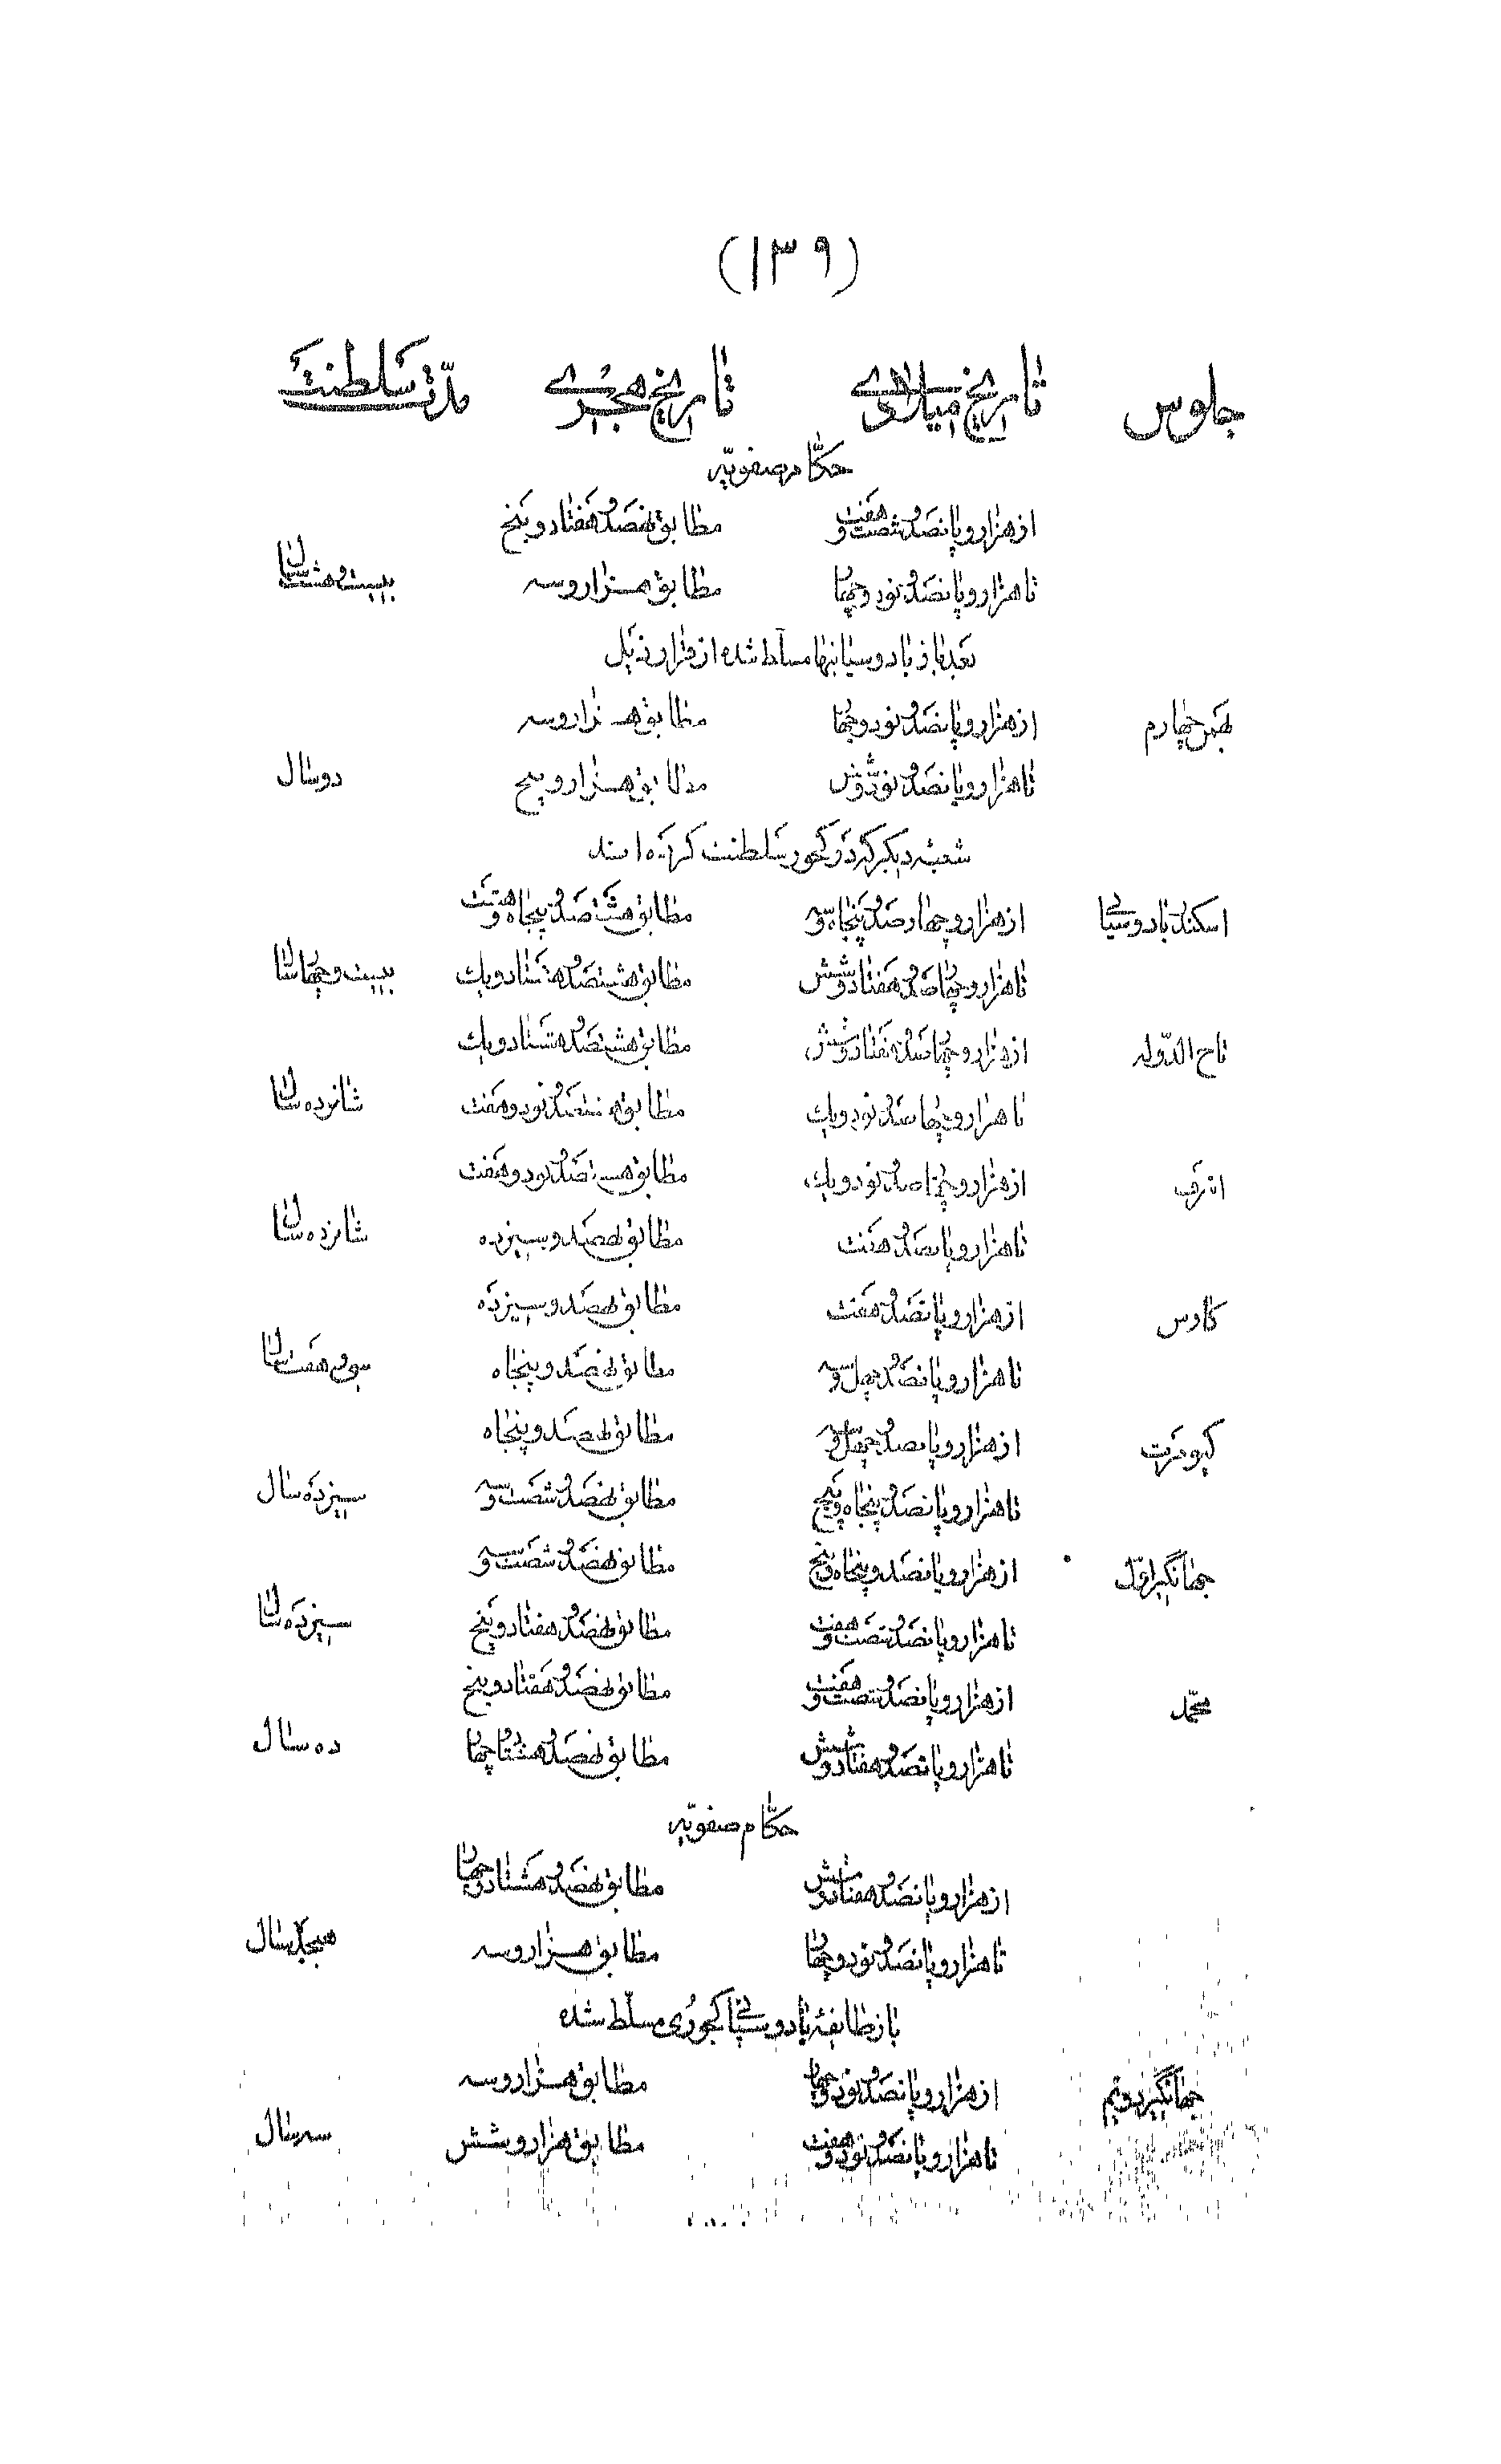 (۱۳۹)
جلوس تاریخ میلادی تاریخ هجری مدّت سلطنت
حکّام صفویّه
از هزار و پانصد و شصت و هفت مطابق نهصد و هفتاد و پنج
تا هزار و پانصد و نود و چهار مطابق هزار و سه بیست و هشت سال
بعد باز بادوسپانیها مسلّط شده از قرار ذیل
بهمن چهارم از هزار و پانصد و نود و چهار مطابق هزار و سه
تا هزار و پانصد و نود و شش مطابق هزار و پنج دو سال
شعبهٔ دیگر که در کجور سلطنت کرده‌اند
اسکندر بادوسپانی از هزار و چهارصد و پنجاه و سه مطابق هشتصد و پنجاه و هشت
تا هزار و چهارصد و هفتاد و شش مطابق هشتصد و هشتاد و یک بیست و چهار سال
تاج الدّوله از هزار و چهارصد و هفتاد و شش مطابق هشتصد و هشتاد و یک
تا هزار و چهارصد و نود و یک مطابق هشتصد و نود و هفت شانزده سال
اشرف از هزار و چهارصد و نود و یک مطابق هشتصد و نود و هفت
تا هزار و پانصد و هفت مطابق نهصد و سیزده شانزده سال
کاوس از هزار و پانصد و هفت مطابق نهصد و سیزده
تا هزار و پانصد و چهل و سه مطابق نهصد و پنجاه سی و هفت سال
کیومرث از هزار و پانصد و چهل و سه مطابق نهصد و پنجاه
تا هزار و پانصد و پنجاه و پنج مطابق نهصد و شصت و سه سیزده سال
جهانگیر اوّل از هزار و پانصد و پنجاه و پنج مطابق نهصد و شصت و سه
تا هزار و پانصد و شصت و هفت مطابق نهصد و هفتاد و پنج سیزده سال
محمّد از هزار و پانصد و شصت و هفت مطابق نهصد و هفتاد و پنج
تا هزار و پانصد و هفتاد و شش مطابق نهصد و هشتاد و چهار ده سال
حکّام صفویّه
از هزار و پانصد و هفتاد و شش مطابق نهصد و هشتاد و چهار
تا هزار و پانصد و نود و چهار مطابق هزار و سه هیجده سال
باز طایفهٔ بادوسپانی کجوری مسلّط شده
جهانگیر دویم از هزار و پانصد و نود و چهار مطابق هزار و سه
تا هزار و پانصد و نود و هفت مطابق هزار و شش سه سال